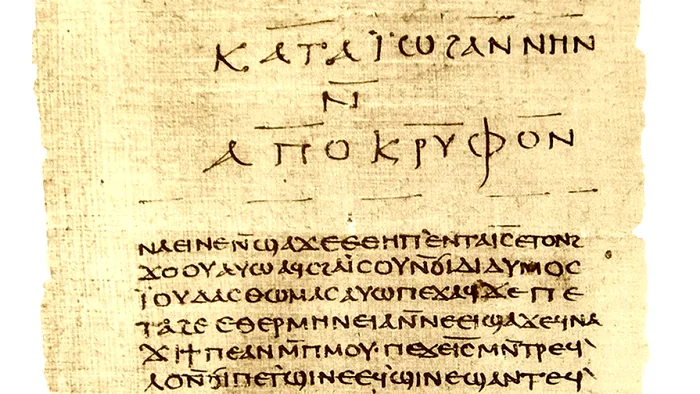 ⲕⲁⲧⲁ ⲓ̈ⲱϩⲁⲛⲛⲏⲛ
ⲛ̄
ⲁⲡⲟⲕⲣⲩⲫⲟⲛ
ⲛⲁⲉⲓⲛⲉⲛ̄ϣⲁϫⲉⲉⲑⲏⲡʼⲉⲛⲧⲁⲓ̅ⲥ̅ⲉⲧⲟⲛϩ
ϫⲟⲟⲩⲁⲩⲱⲁϥⲥϩⲁⲓ̈ⲥⲟⲩⲛ̄ϭⲓⲇⲓⲇⲩⲙⲟⲥ
ⲓ̈ⲟⲩⲇⲁⲥⲑⲱⲙⲁⲥⲁⲩⲱⲡⲉϫⲁϥϫⲉⲡⲉ
ⲧⲁϩⲉⲉⲑⲉⲣⲙⲏⲛⲉⲓⲁⲛ̄ⲛⲉⲉⲓϣⲁϫⲉϥⲛⲁ
ϫⲓϯⲡⲉⲁⲛⲙ̄ⲡⲙⲟⲩ·ⲡⲉϫⲉⲓ̅ⲥ̅ⲙⲛ̄ⲧⲣⲉϥʼ
ⲗⲟⲛ̄ϭⲓⲡⲉⲧϣⲓⲛⲉⲉϥϣⲓⲛⲉϣⲁⲛⲧⲉϥʼ